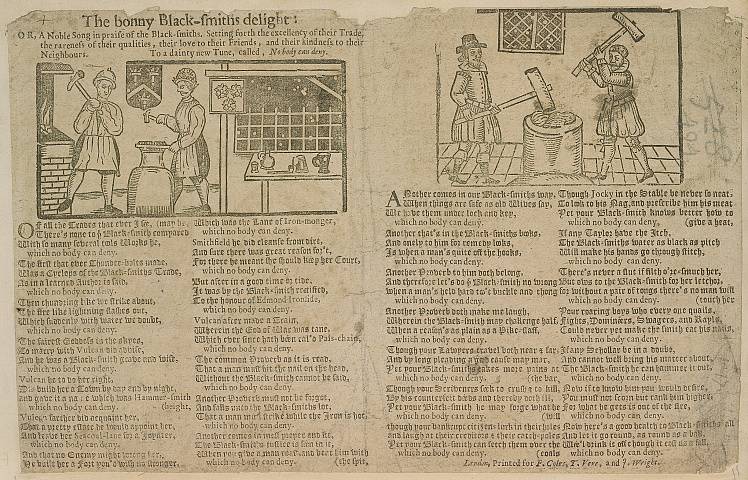 The bonny Black-smiths delight:
OR, A Noble Song in praise of the Black-smiths. Setting forth the excellency of their Trade,
the rareness of their qualities, their love to their Friends, and their kindness to their
Neighbours. To a dainty new Tune, called, No body can deny.
OF all the Trades that ever I see, (may be,
There's none to ye Black-smith compared
With so many several tools Works he,
which no body can deny.
The first that ever Thunder-bolts made,
Was a Cyclops of the Black-smiths Trade,
As in a learned Author is said,
which no body can deny.
Then thundring like we strike about,
The fire like lightning flashes out,
Which suddenly with water we doubt,
which no body can deny.
The fairest Goddess in the skyes,
To marry with Vulcan did advise,
And he was a Black-smith grave and wise,
which no body can deny.
Vulcan he to do her right,
Did build her a Town by day and by night,
and gave it a name which was Hammer-smith
which no body can deny. (height,
Vulcan further did acquaint her,
That a pretty estate he would appoint her,
And leave her Seacoal-lane for a Joynter,
which no body can deny.
And that no Enemy might wrong her,
He built her a Fort you'd wish no stronger,
Which was the Lane of Iron-monger,
which no body can deny.
Smithfield he did cleanse from dirt,
And sure there was great reason for't,
For there he meant she should keep her Court,
which no body can deny.
But after in a good time &amp; tide,
It was by the Black-smith rectifi'd,
To the honour of Edmond Ironside,
which no body can deny.
Vulcan after made a Train,
Wherein the God of War was tane,
Which ever since hath been cal'd Pauls-chain,
which no body can deny.
The common Proverb as it is read,
That a man must hit the nail on the head,
Without the Black-smith cannot be said,
which no body can deny.
Another Proverb must not be forgot,
And falls unto the Black-smiths lot,
That a man must strike while the Iron is hot,
which no body can deny.
Another comes in most proper and fit,
The Black-smiths justice is seen in it,
When you give a man roast and beat him with
which no body can deny. (the spit,
ANother comes in our Black-smiths way,
When things are safe as old Wives say,
We have them under lock and key,
which no body can deny.
Another that's in the Black-smiths books,
And onely to him for remedy looks,
Is when a man's quite off the hooks,
which no body can deny.
Another Proverb to him doth belong,
And therefore let's do ye Black-smith no wrong
When a man's held hard to't buckle and thong
which no body can deny.
Another Proverb doth make me laugh,
Wherein the Black-smith may challenge half,
When a reason's as plain as a Pike-staff,
which no body can deny.
Though your Lawyers travel both near &amp; far
And by long pleading a good cause may mar,
Yet your Black-smith takes more pains at
which no body can deny. (the bar,
Though your Scriveners seek to crush &amp; to kill
By his counterfeit deeds and thereby doth ill,
Yet your Black-smith he may forge what he
which no body can deny. (will
Though your bankrupt citizens lurk in their holes
and laugh at their creditors &amp; their catch-poles
Yet your Black-smith can fetch them over the
which no body can deny. (coals
Though Jocky in the Stable be never so neat,
To look to his Nag, and prescribe him his meat
Yet your Black-smith knows better how to
which no body can deny. (give a heat,
If any Taylor have the Itch,
The Black-smiths water as black as pitch
Will make his hands go through stitch,
which no body can deny.
There's never a slut if filth o're-smuch her,
But ows to the Black-smith for her leacher,
for without a pair of tongs there's no man will
which no body can deny. (touch her
Your roaring boys who every one quails,
Fights, Domineers, Swagers, and Rayls,
Could never yet make the smith eat his nails,
which no body can deny.
If any Schollar be in doubt,
And cannot well bring his matter about,
The Black-smith he can hammer it out,
which no body can deny.
Now if to know him you would desire,
You must not scorn but rank him higher,
For what he gets is out of the fire,
which no body can deny.
Now here's a good health to Black-smiths all
And let it go round, as round as a ball,
We'l drink it off though it cost us a fall,
which no body can deny.
London, Printed for F. Coles, T. Vere, and J. Wright.